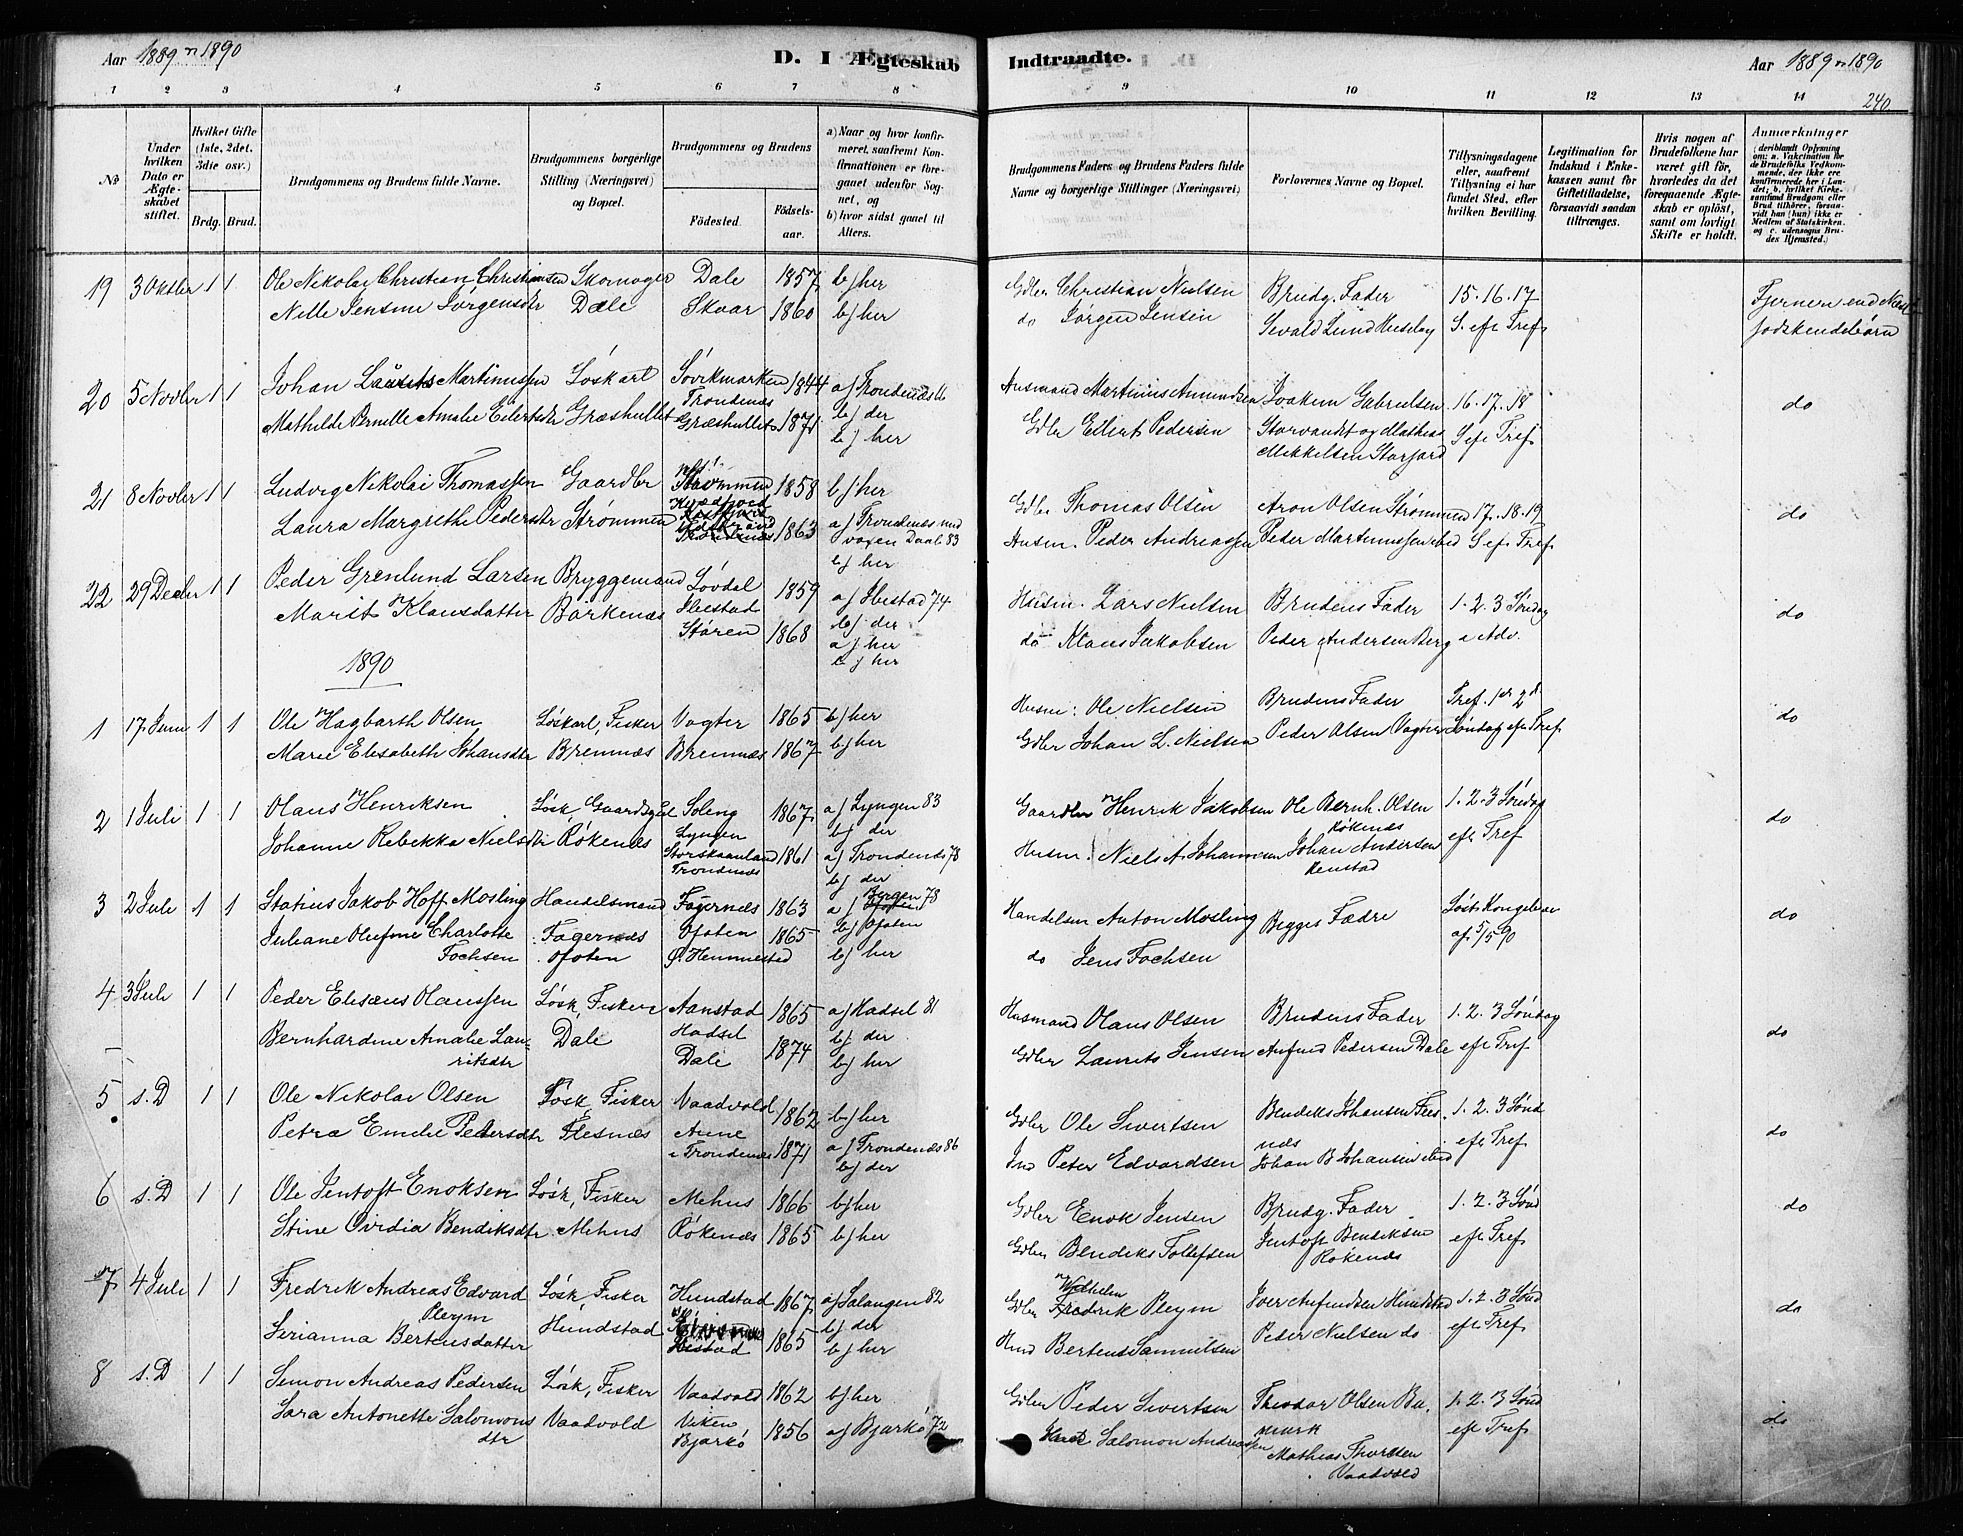 Aar 1889 & 1890
D. I Ægteskab
Indtraadte.
Aar 1889 & 1890
240
1 2 3 4 5 6 7 8 9 10 11 12 13 14
No
Under hvilken Dato er Ægteskabet stiftet.
Hvilket Gifte (1ste, 2det, 3die osv.)
Brdg. Brud.
Brudgommens og Brudens fulde Navne.
Brudgommens borgerlige Stilling (Næringsvei) og Bopæl.
Brudgommens og Brudens
Fødested.
Fødselsaar.
a) Naar og hvor konfirmeret, saafremt Konfirmationen er foregaaet udenfor Sognet, og
b) hvor sidst gaaet til Alters.
Brudgommens Faders og Brudens Faders fulde Navne og borgerlige Stillinger (Næringsvei)
Forlovernes Navne og Bopæl.
Tillysningsdagene eller, saafremt Tillysning ei har fundet Sted, efter hvilken Bevilling.
Legitimation for Indskud i Enkekassen samt for Giftetilladelse, forsaavidt saadan tiltrænges.
Hvis nogen af Brudefolkene har været gift før, hvorledes da det foregaaende Ægteskab er opløst, samt om lovligt Skifte er holdt.
Anmærkninger (deriblandt Oplysning om: a. Vakcination for de Brudefolks Vedkommende, der ikke ere konfirmerede her i Landet; b. hvilket Kirkesamfund Brudgom eller Brud tilhører, forsaavidt han (hun) ikke er Medlem af Statskirken, og c. udensogns Brudes Hjemsted.)
19 3 Oktbr 1 1 Ole Nikolai Christian Christiansen Skomager Dale 1857 b) her Gdbr Christian Nielsen Brudg. Fader 15. 16. 17 Fjernere end Næst
Nelle Jensine Jørgensdtr Dale Skaar 1860 b) her do Jørgen Jensen Sevald Lund Huseby S. eft Tref fødskendebørn
20 5 Novbr 1 1 Johan Laurits Martinussen Løskarl Sørvikmarken 1844 a) Trondenæs Husmand Martinius Amundsen Joakim Gabrielsen 16. 17. 18 do
Trondenæs b) der
Mathilde Pernille Amalie Eilertsdtr Græshullet Græshullet 1871 b) her Gdbr Eilert Pedersen Storvandet og Mathias S eft Tref
Mikkelsen Storjord
21 8 Novbr 1 1 Ludvig Nikolai Thomassen Gaardbr Strømmen 1858 b) her Gdbr Thomas Olsen Aron Olsen Strømmen 17. 18. 19 do
Laura Margrethe Pedersdtr Strømmen Kvædfjord 1863 a) Trondenæs med Husm. Peder Andreassen Peder Martinussen ibid S eft Tref
voxen Daab 83
b) her
22 29 Decbr 1 1 Peder Grønlund Larsen Bryggemand Løvdal 1859 a) Ibestad 74 Husm. Lars Nielsen Brudens Fader 1. 2. 3 Søndag do
Marit Klausdatter Borkenæs Ibestad b) der
Støren 1868 a) her do Klaus Jakobsen Peder Andersen Berg i Adv.
b) her
1890
1 17 Juni 1 1 Ole Hagbarth Olsen Løskarl, Fisker Vogter 1865 b) her Husm: Ole Nielsen Brudens Fader Tref. 1st 2d do
Marie Elisabeth Johansdtr Bremnæs Bremnæs 1867 b) her Gdbr Johan L. Nielsen Peder Olsen Vogter Søndag eft Tref
2 1 Juli 1 1 Olaus Henriksen Løsk, Gaardsgut Soleng 1867 a) Lyngen 83 Gaardbr Henrik Jakobsen Ole Bernh. Olsen 1. 2. 3 Søndag do
Lyngen b) der Røkenæs
Johanne Rebekka Nielsdtr Røkenæs Storskaanland 1861 a) Trondenæs 78 Husm. Niels A. Johannesen Johan Andersen eft Tref
Trondenæs b) der Renstad
3 2 Juli 1 1 Statius Jakob Hoff Mosling Handelsmand Fagernæs 1863 a) Bergen 78 Handelsm Anton Mosling Begges Fædre Løst Kongebrev do
Juliane Olufine Charlotte Fagernæs Ofoten 1865 b) Ofoten af 5/5 90
Fochsen Ofoten Ø. Hemmestad b) her do Jens Fochsen
4 3 Juli 1 1 Peder Elisæus Olaussen Løsk, Fisker Aanstad 1865 a) Hadsel 81 Husmand Olaus Olsen Brudens Fader 1. 2. 3 Søndag do
Bernhardine Amalie Lau- Dale Hadsel b) der
ritsdtr Dale 1874 b) her Gdbr Laurits Jensen Anfind Pedersen Dale eft Tref
5 s. D 1 1 Ole Nikolai Olsen Løsk, Fisker Vaadvold 1862 b) her Gdbr Ole Sivertsen Bendiks Johansen Fles- 1. 2. 3 Sønd do
Petra Emilie Pedersdtr Flesnæs Aune næs
i Trondenæs 1871 a) Trondenæs 86 Ind Peter Edvardsen Johan B Johansen ibid eft Tref
b) der
6 s. D 1 1 Ole Jentoft Enoksen Løsk, Fisker Mehus 1866 b) her Gdbr Enok Jensen Brudg. Fader 1. 2. 3 Sønd do
Stine Ovidia Bendiksdtr Mehus Røkenæs 1865 b) her Gdbr Bendiks Tollefsen Jentoft Bendiksen eft Tref
Røkenæs
7 4 Juli 1 1 Fredrik Andreas Edvard Løsk, Fisker Hundstad 1867 a) Salangen 82 Gdbr Wilhelm Fredrik Pleym Iver Anfindsen Hundstad 1. 2. 3 Sønd do
Pleym Hundstad b) der
Serianna Berteusdatter Ibestad 1865 b) her Husm Berteus Samuelsen Peder Nielsen do eft Tref
8 s. D 1 1 Simon Andreas Pedersen Løsk, Fisker Vaadvold 1862 b) her Gdbr Peder Sivertsen Theodor Olsen Bu- 1. 2. 3 Sønd do
Sara Antonette Salomons Vaadvold Viken 1856 a) Bjarkø 72 Salomon Andreassen mark eft Tref
dtr Bjarkø Mathias Thoresen
Vaadvold